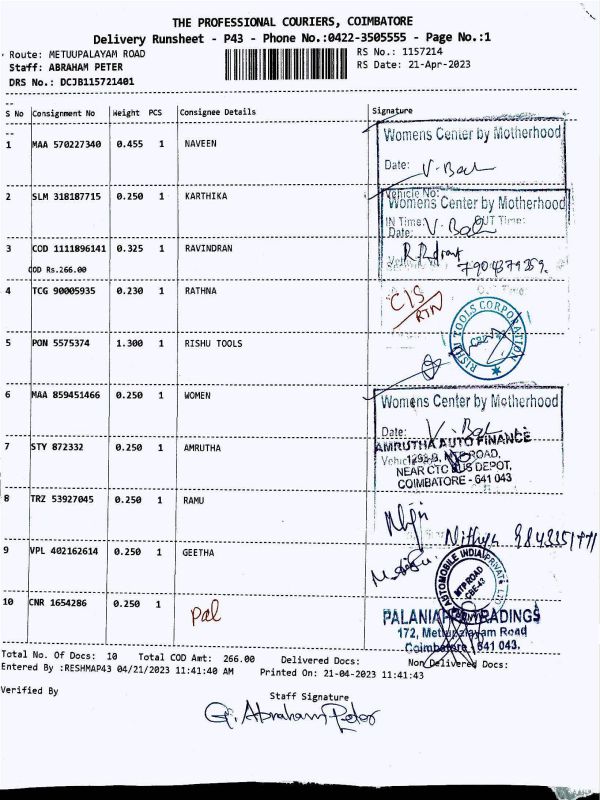 THE PROFESSIONAL COURIERS, COIMBATORE
Delivery Runsheet - P43 - Phone No.:0422-3505555 - Page No.:1
Route: METUUPALAYAM ROAD
RS No.: 1157214
Staff: ABRAHAM PETER
RS Date: 21-Apr-2023
DRS No.: DCJB115721401
S No Consignment No Weight PCS Consignee Details Signature
1 MAA 570227340 0.455 1 NAVEEN
Womens Center by Motherhood
Date:
2 SLM 318187715 0.250 1 KARTHIKA
Vehicle No:
Womens Center by Motherhood
IN Time: OUT Time:
Date:
3 COD 1111896141 0.325 1 RAVINDRAN
COD Rs.266.00
7904379259.
4 TCG 90005935 0.230 1 RATHNA
CIS
RTN
5 PON 5575374 1.300 1 RISHU TOOLS
RISHU TOOLS CORPORATION
6 MAA 859451466 0.250 1 WOMEN
Womens Center by Motherhood
Date:
7 STY 872332 0.250 1 AMRUTHA
AMRUTHA AUTO FINANCE
NEAR CTC BUS DEPOT,
COIMBATORE - 641 043
8 TRZ 53927045 0.250 1 RAMU
Nithya
9 VPL 402162614 0.250 1 GEETHA
MTP ROAD
CBE-43
10 CNR 1654286 0.250 1 Pal
172, Mettupalayam Road
Coimbatore - 641 043.
Total No. Of Docs: 10 Total COD Amt: 266.00 Delivered Docs: Non Delivered Docs:
Entered By :RESHMAP43 04/21/2023 11:41:40 AM Printed On: 21-04-2023 11:41:43
Verified By
Staff Signature
G. Abraham Peter